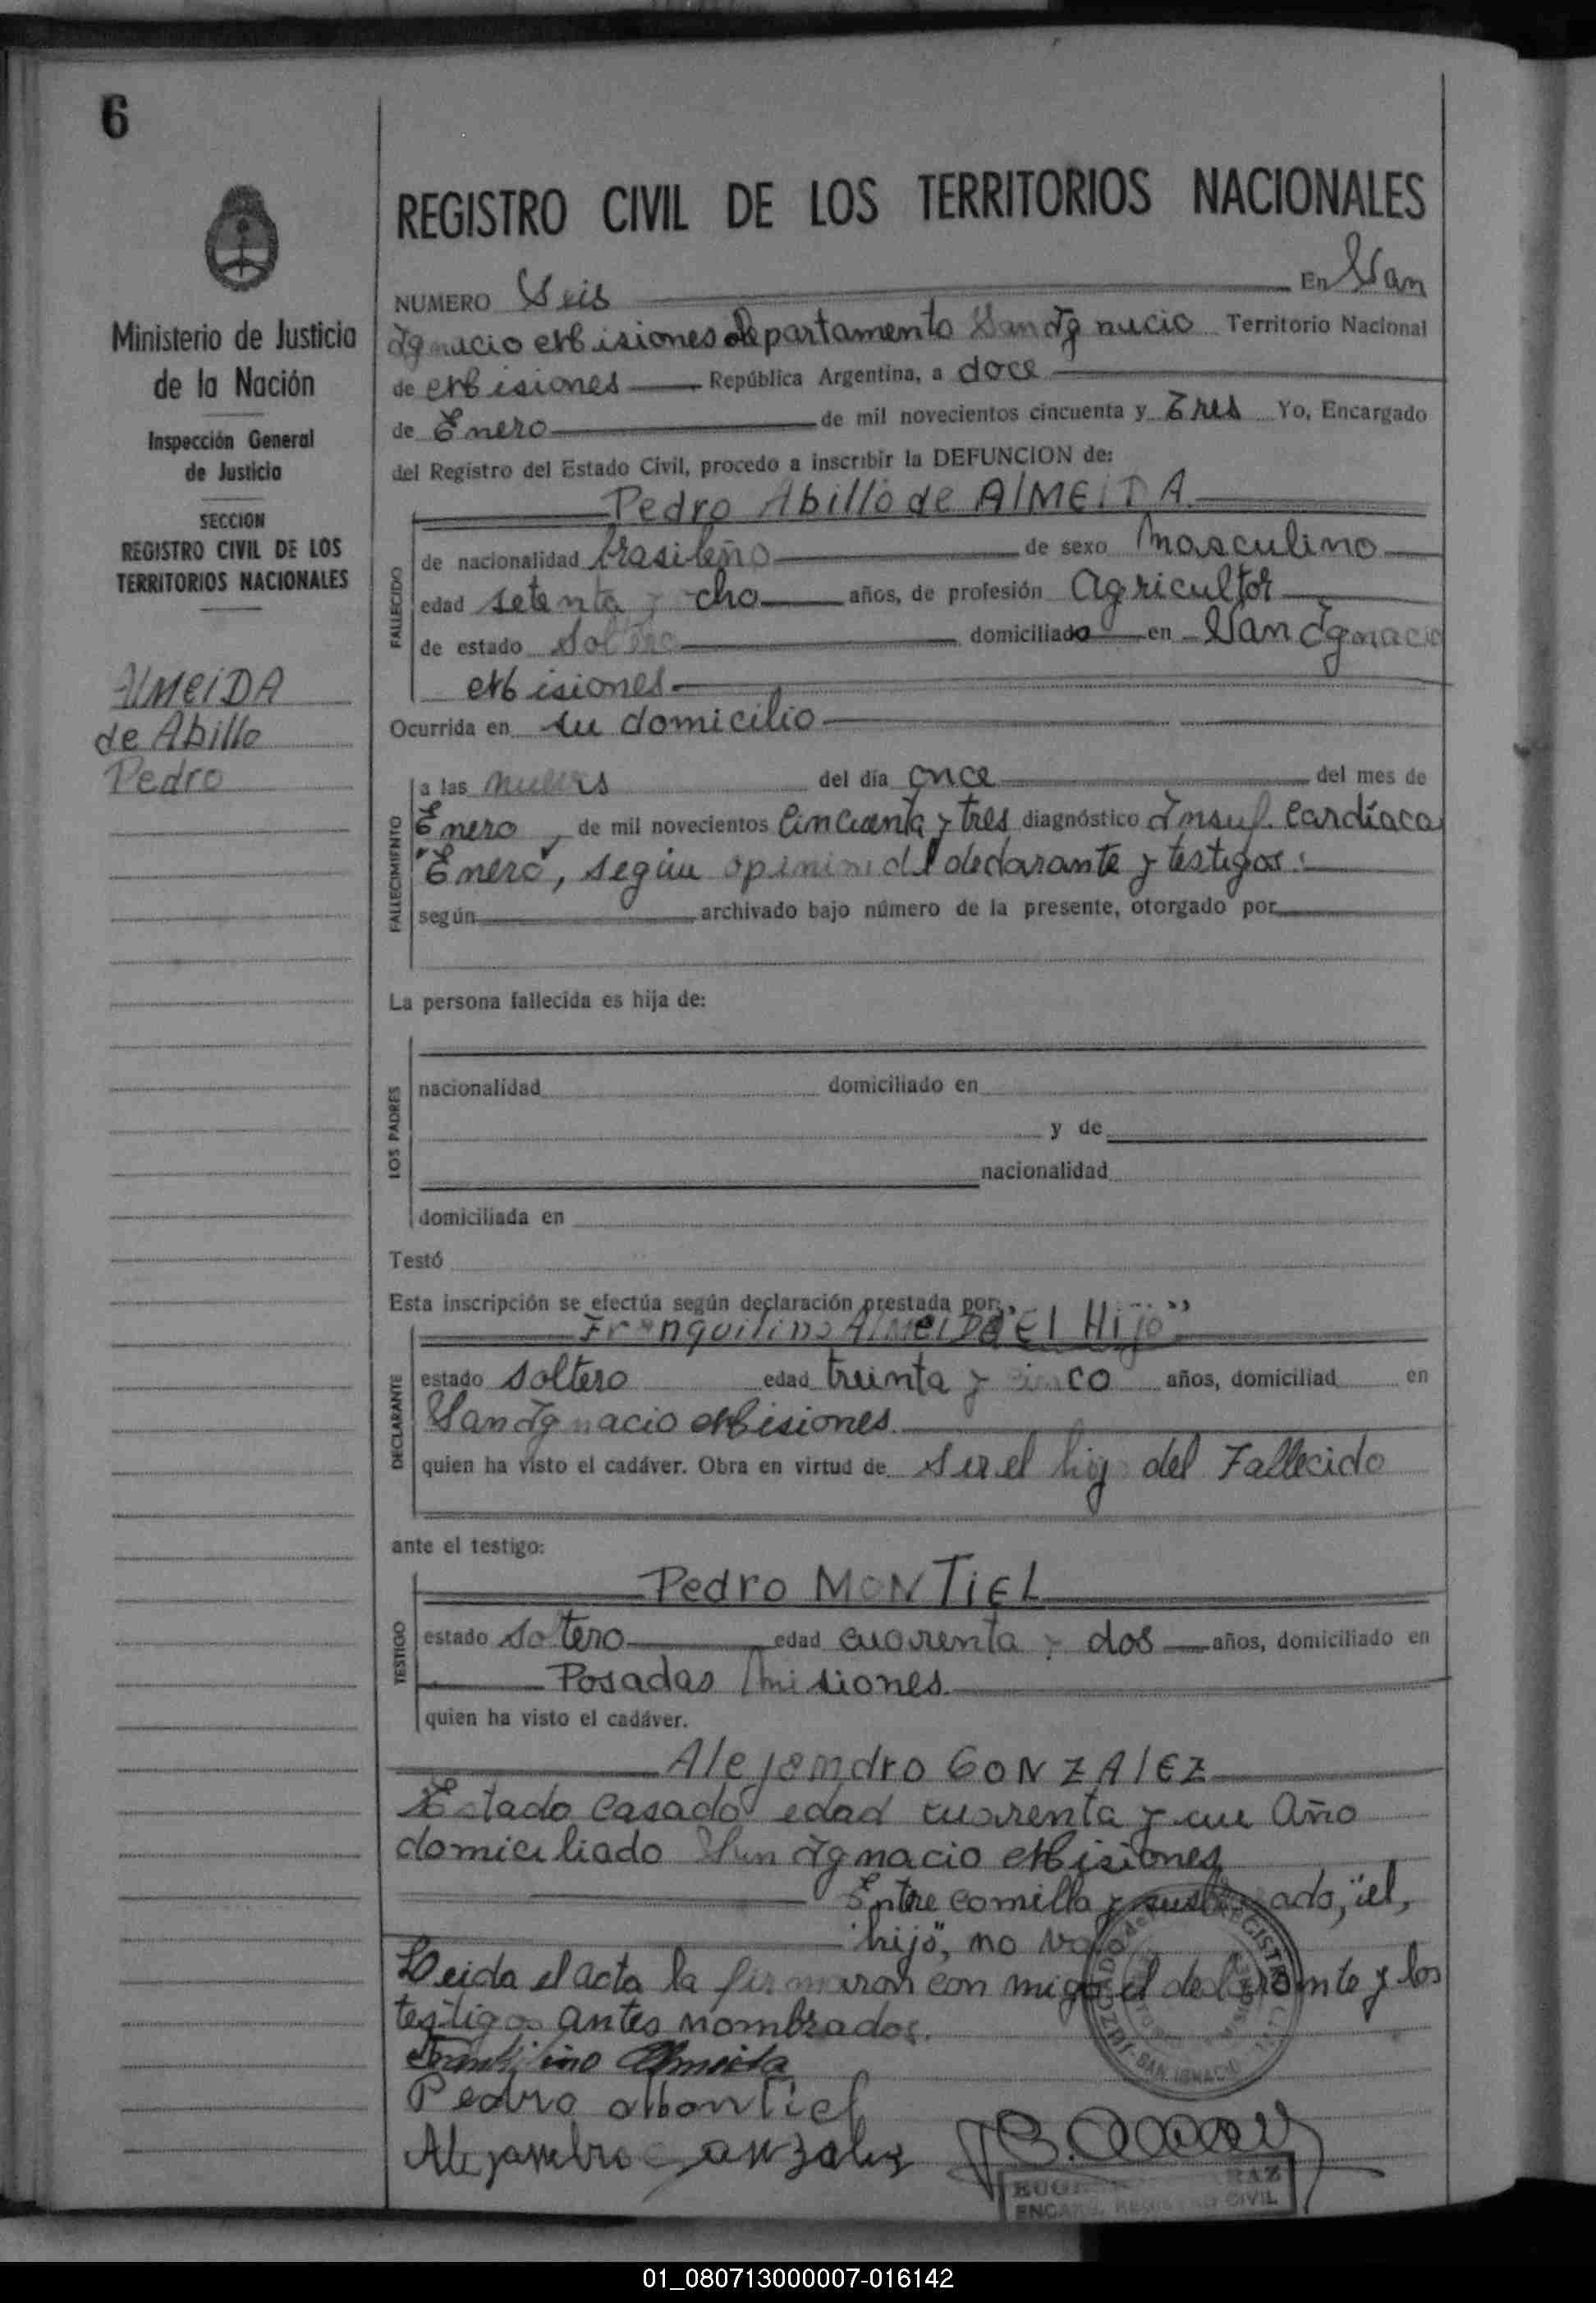 6
Ministerio de Justicia
de la Nación
Inspección General
de Justicia
SECCION
REGISTRO CIVIL DE LOS
TERRITORIOS NACIONALES
ALMEIDA
de Abillo
Pedro
REGISTRO CIVIL DE LOS TERRITORIOS NACIONALES
NUMERO Seis En San
Ignacio Misiones departamento San Ignacio Territorio Nacional
de Misiones República Argentina, a doce
de Enero de mil novecientos cincuenta y Tres Yo, Encargado
del Registro del Estado Civil, procedo a inscribir la DEFUNCION de:
Pedro Abillo de AlMEIDA
FALLECIDO
de nacionalidad brasileño de sexo Masculino
edad setenta y ocho años, de profesión Agricultor
de estado Soltero domiciliado en San Ignacio
Misiones
Ocurrida en su domicilio
FALLECIMIENTO
a las del día once del mes de
Enero, de mil novecientos Cincuenta y tres diagnóstico Insuf. Cardíaca
"Enero", según opinion del declarante y testigos.
según archivado bajo número de la presente, otorgado por
La persona fallecida es hija de:
LOS PADRES
nacionalidad domiciliado en
y de
nacionalidad
domiciliada en
Testó
Esta inscripción se efectúa según declaración prestada por:
Franquilino AlMEIDA "El Hijo"
DECLARANTE
estado Soltero edad treinta y cinco años, domiciliad en
San Ignacio Misiones
quien ha visto el cadáver. Obra en virtud de Ser el hijo del Fallecido
ante el testigo:
Pedro MONTIEL
TESTIGO
estado Soltero edad cuarenta y dos años, domiciliado en
Posadas Misiones
quien ha visto el cadáver.
Alejandro GONZAlEZ
Estado Casado edad cuarenta y un Año
domiciliado San Ignacio Misiones
Entre comilla y "el,
hijo", no vale
Leida el acta la firmaron con migo el declarante y los
testigos antes nombrados.
Almeida
Pedro Montiel
Alejandro Gonzalez
SAN IGNACIO
ENCARG. REGISTRO CIVIL
01_080713000007-016142